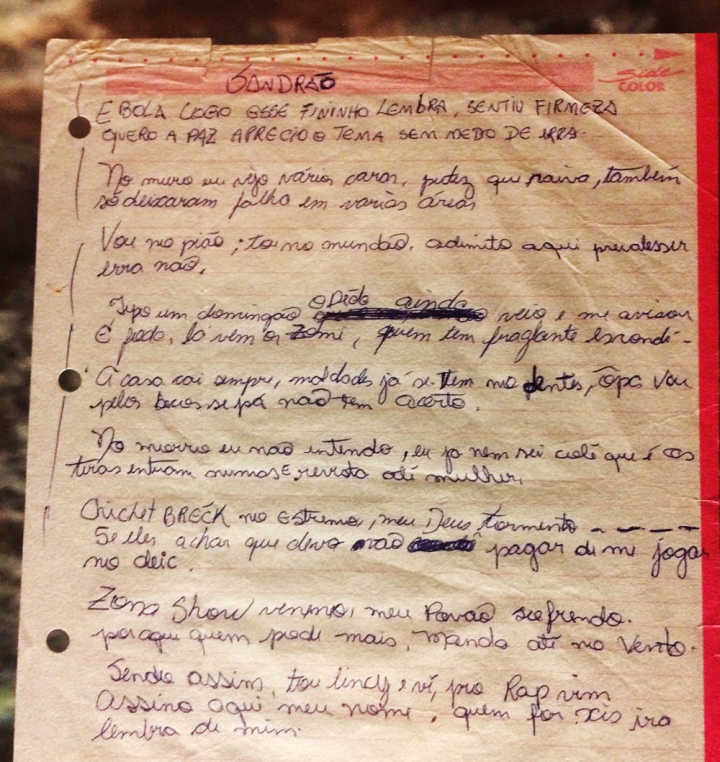 SANDRÃO
E BOLA LOGO ESSE FININHO LEMBRA, SENTIU FIRMEZA
QUERO A PAZ APRECIO O TEMA SEM MEDO DE ERRA.
No muro eu vejo vários caras, que raiva, também
só deixaram falha em várias áreas
Vou no pião; tou no mundão, admito aqui prevalesser
erro não.
Tipo um domingão o Dedo ainda veio e me avisou
é foda, lá vem os Zomi, quem tem fraglante escondi-
A casa cai sempre, maldades já se tem no dentes, ôpa vou
pelos becos se pá não tem acerto.
No morro eu não entendo, eu já nem sei colé que é os
tiras entram numas E revista até mulher.
Chiclet BRECK no Estremo, meu Deus tormento - - - -
Se eles achar que devo não pagar di me jogar
no deic.
Zona Show veneno, meu Povão sofrendo.
por aqui quem pode mais, manda até no vento.
Sendo assim, tou lindy e vi, pro Rap vim
Assino aqui meu nome, quem for xis ira
lembra de mim.
COLOR